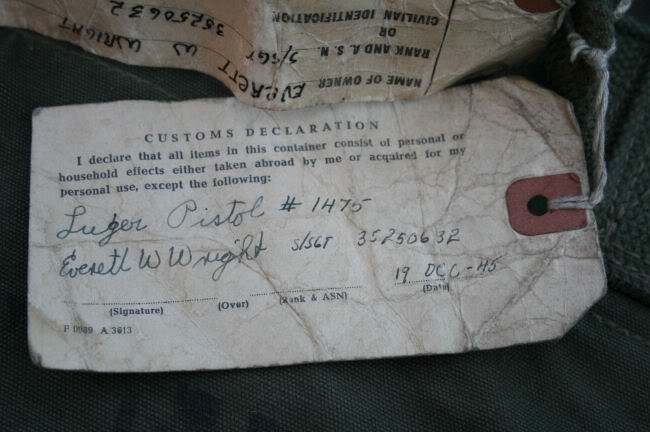 NAME OF OWNER EVERETT W WRIGHT
RANK AND A. S. N. S/SGT 35250632
OR
CIVILIAN IDENTIFICATION
CUSTOMS DECLARATION
I declare that all items in this container consist of personal or
household effects either taken abroad by me or acquired for my
personal use, except the following:
Luger Pistol # 1475
Everett W Wright S/SGT 35250632
19 DEC-45
(Signature) (Over) (Rank & ASN) (Date)